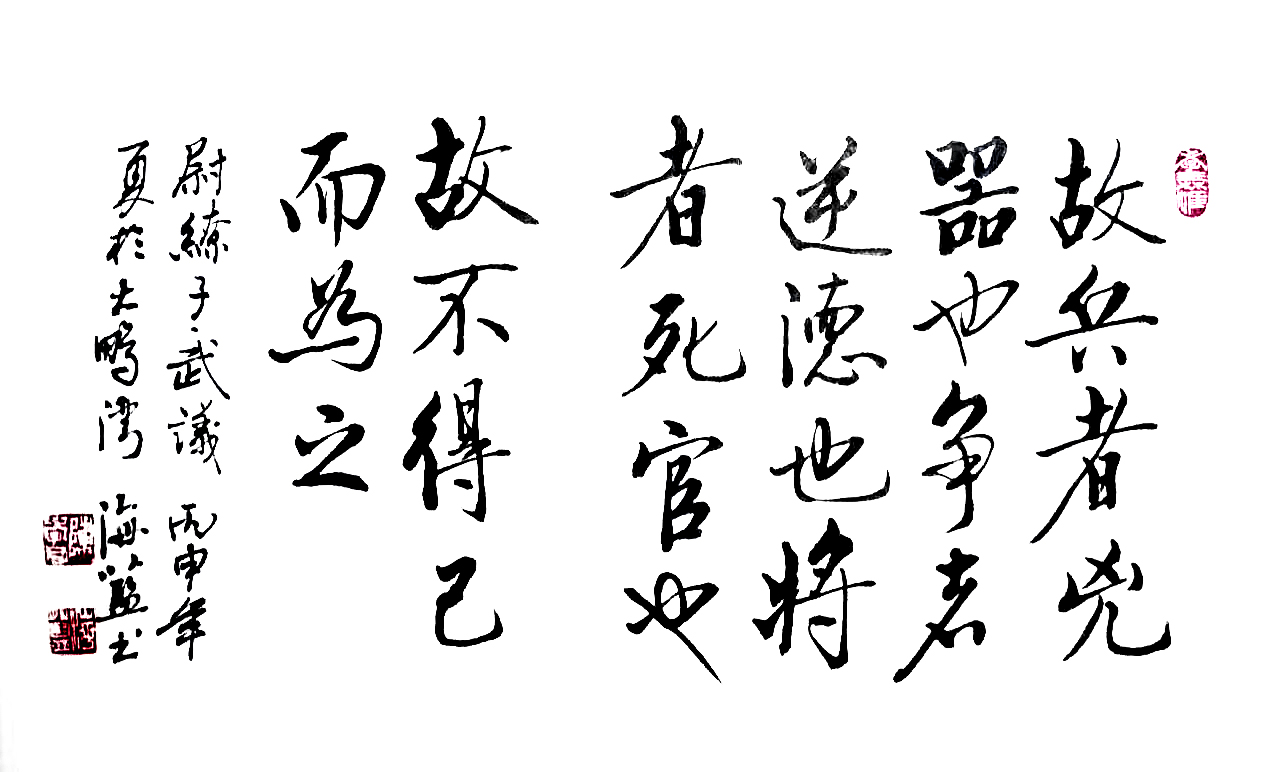 故兵者兇
器也争者
逆德也将
者死官也
故不得已
而為之
尉繚子武議 丙申年
夏於大鵬湾 海藍书